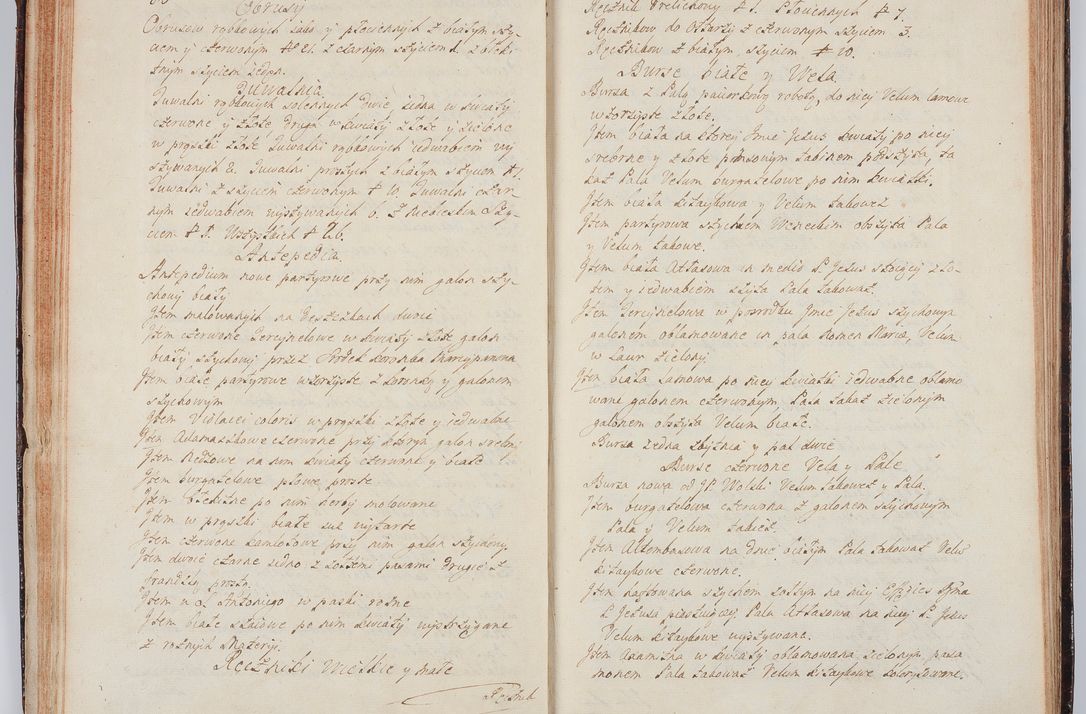 Obrusy
Obrusow rąbkowych iako y płociennych z białym szy-
ciem y czerwonym # 21. z czarnym szyciem 1. z błęki-
tnym szyciem ieden.
Tuwalnia
Tuwalni rąbkowych solennych dwie iedna w kwiaty
czerwone y złote druga w kwiaty złote y zielone
w prążki złote Tuwalni rąbkowych iedwabiem wy
szywanych 2. Tuwalni prostych z białym szyciem # 7.
Tuwalni z szyciem czerwonym # 10 Tuwalni czar-
nym iedwabiem wyszywanych 6. z niebieskim Szy-
ciem # 1. Wszystkich # 26.
Antepedia
Antepedium nowe partyrowe przy nim galon szy-
chowy biały
Jtem malowanych na deszczkach dwoie
Jtem czerwone Tercynelowe w kwiaty złote galon
biały szychowy przez Srodek koronka Marcypanowa
Jtem białe partyrowe wzorzyste z koronką y galonem
szychowym
Jtem Violacei coloris w prążki złote y iedwabne
Jtem Adamaszkowe czerwone przy którym galon srebrny
Jtem Kidżowe na nim kwiaty czerwone y białe
Jtem burgatelowe płowe proste
Jtem błękitne po nim herby malowane
Jtem w prążki białe iuż wytarte
Jtem czerwone kamlotowe przy nim galon szychowy.
Jtem dwoie czarne iedno z żołtemi pasami drugie z
frandzlą prostą.
Jtem u S. Antoniego w paski rożne
Jtem białe po nim kwiaty wystrzygane
z rożnych Materyi.
Ręczniki Wielkie y małe
Ręcznik

Ręcznik Trelichowy # 1. Płociennych # 7.
Ręcznikow do Ołtarzy z czerwonym szyciem 3.
Ręcznikow z białym szyciem # 10.
Burse białe y Wela
Bursa z roboty, do niey Velum lamowe
wzorzyste złote.
Jtem biała na ktorey Jmie Jezus kwiaty po niey
srebrne y złote pąsowym tabinem podszyta, ta
każ Pala Velum burgatelowe po nim kwiatki.
Jtem biała kitaykowa y Velum takowez
Jtem partyrowa szychem Weneckim obszyta Pala
y Velum takowe.
Jtem biała Atłasowa in medio P. Jezus stoiący zło-
tem y iedwabiem szyta Pala takoważ.
Jtem Tercynelowa w posrodku Jmie Jezus szychowym
galonem oblamowane in pala Nomen Maria, Velum
w Laur zielony
Jtem biała lamowa po niey kwiatki iedwabne oblamo
wane galonem czerwonym, Pala takaż zielonym
galonem obszyta Velum białe.
Bursa iedna y pal dwie
Burse czerwone Vela y Pale
Bursa nowa od JP. Wolski Velum takowez y Pala.
Jtem burgatelowa czerwona z galonem szychowym
Pala y Velum takież
Jtem Altembasowa na dnie białym Pala takoważ Velum
kitaykowe czerwone.
Jtem haftowana szychem żołtym na niey Effigies Nyma
P. Jezusa piastuiącey Pala Atłasowa na niey P. Jezus
Velum kitaykowe wyszywane.
Jtem Axamitna w kwiaty oblamowana zielonym pasa
monem Pala takoważ Velum kitaykowe